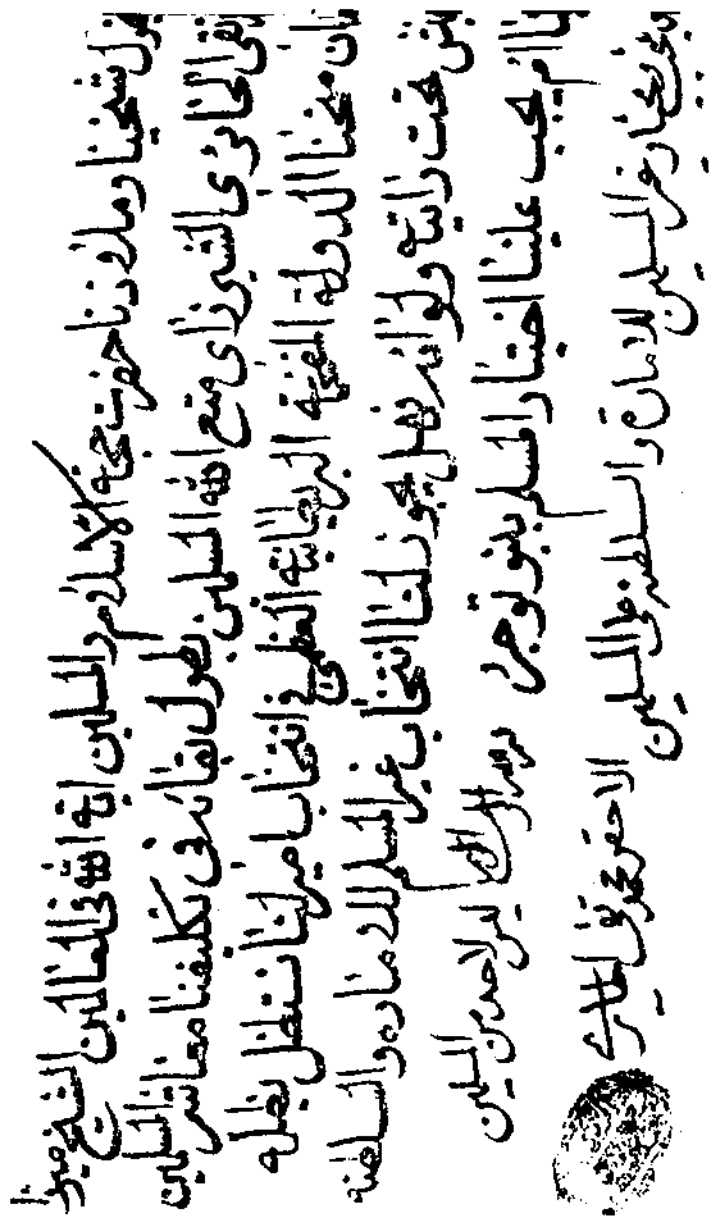 يقول شيخنا وملاذنا حضرت حجة الاسلام والمسلمين اية الله في العالمين الشيخ ميرزا
تقي الحائري الشيرازي متع الله المسلمين بطول بقائه في تكليفنا معاشر المسلمين
ان منحتنا الدولة المفخمة البريطانية العظمى في انتخاب امير لنا نستظل بظله
نعيش تحت رايته ولوائه فهل يجوز لنا انتخاب غير المسلم للامارة والسلطنة
ام يجب علينا اختيار المسلم بينوا توجروا
ليس لاحد من المسلمين
ويختار غير المسلمين للامارة والسلطنة على المسلمين
الاحقر محمد تقي الحائري